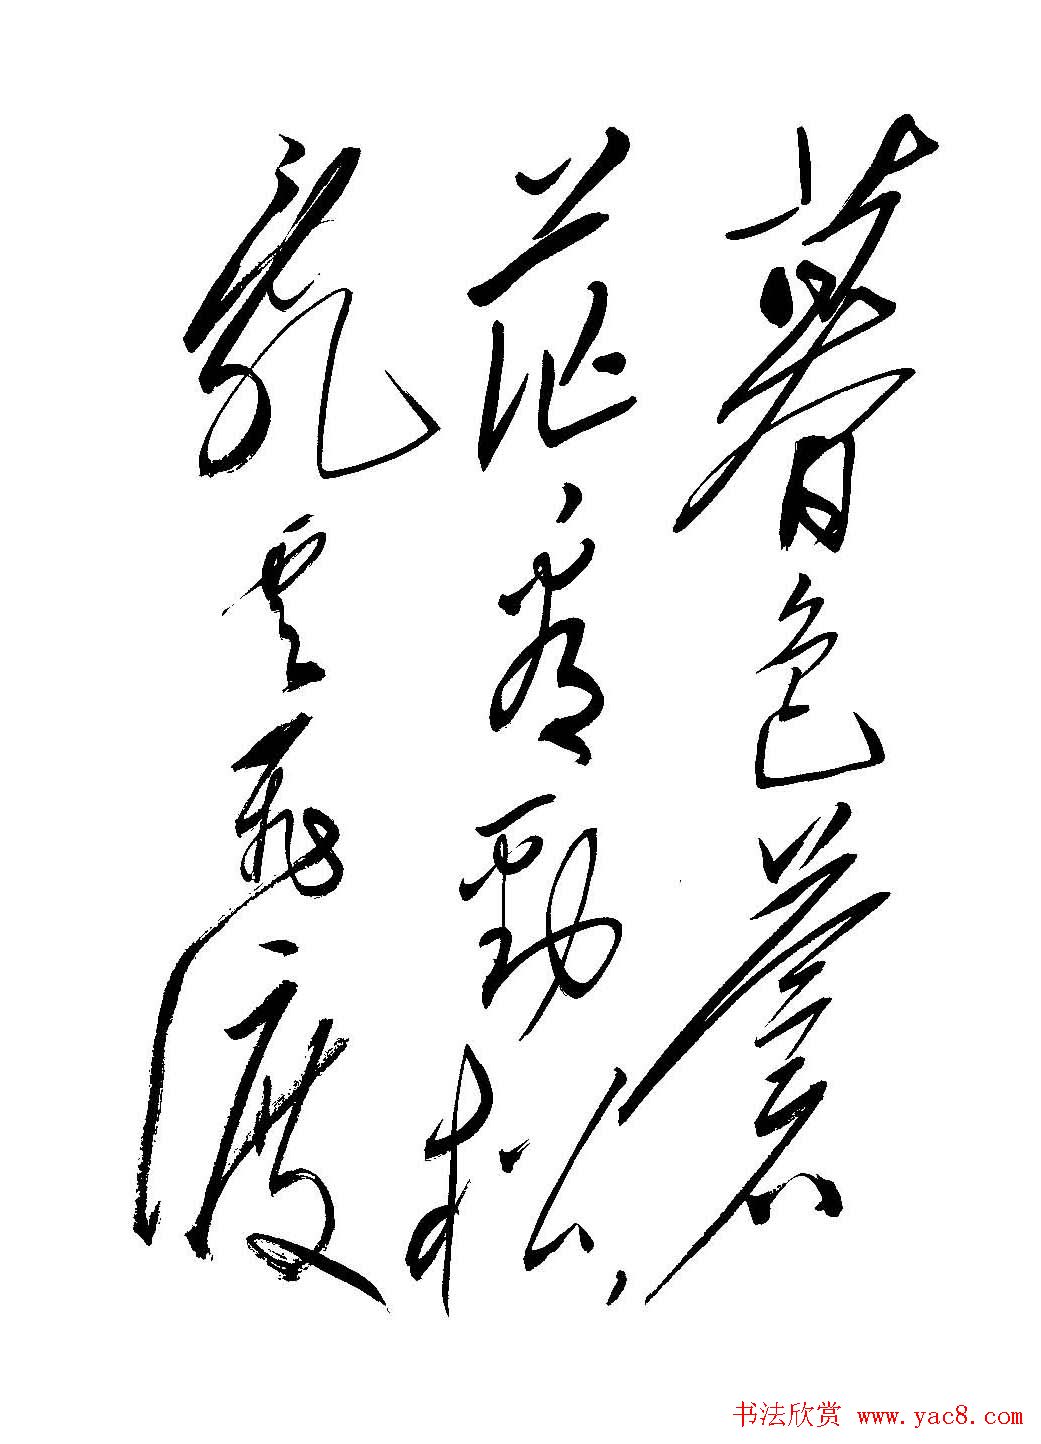 暮色蒼
茫看勁松
亂云飛渡
书法欣赏 www.yac8.com